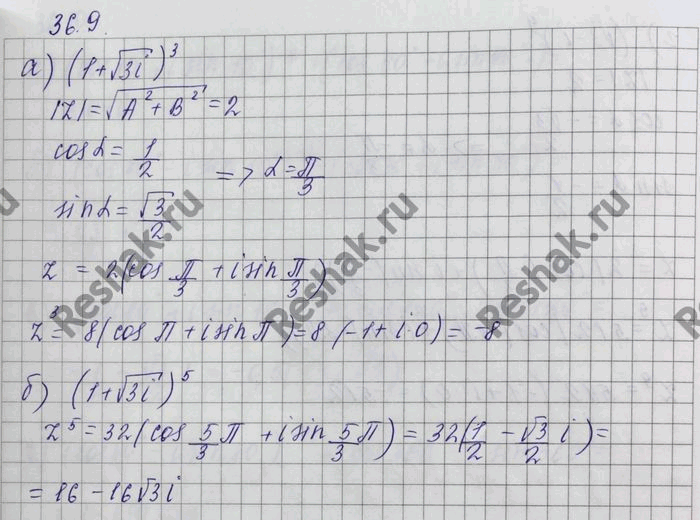 36.9.
а) (1+√3i)³
|Z|=√A²+B²=2
cosα=1/2
=> α=π/3
sinα=√3/2
z = 2(cos π/3 + i sin π/3)
z³=8(cos π + i sin π)=8(-1+i·0)=-8
б) (1+√3i)⁵
z⁵=32(cos 5/3 π + i sin 5/3 π)=32(1/2 - √3/2 i)=
=16-16√3i
Reshak.ru
Reshak.ru
Reshak.ru